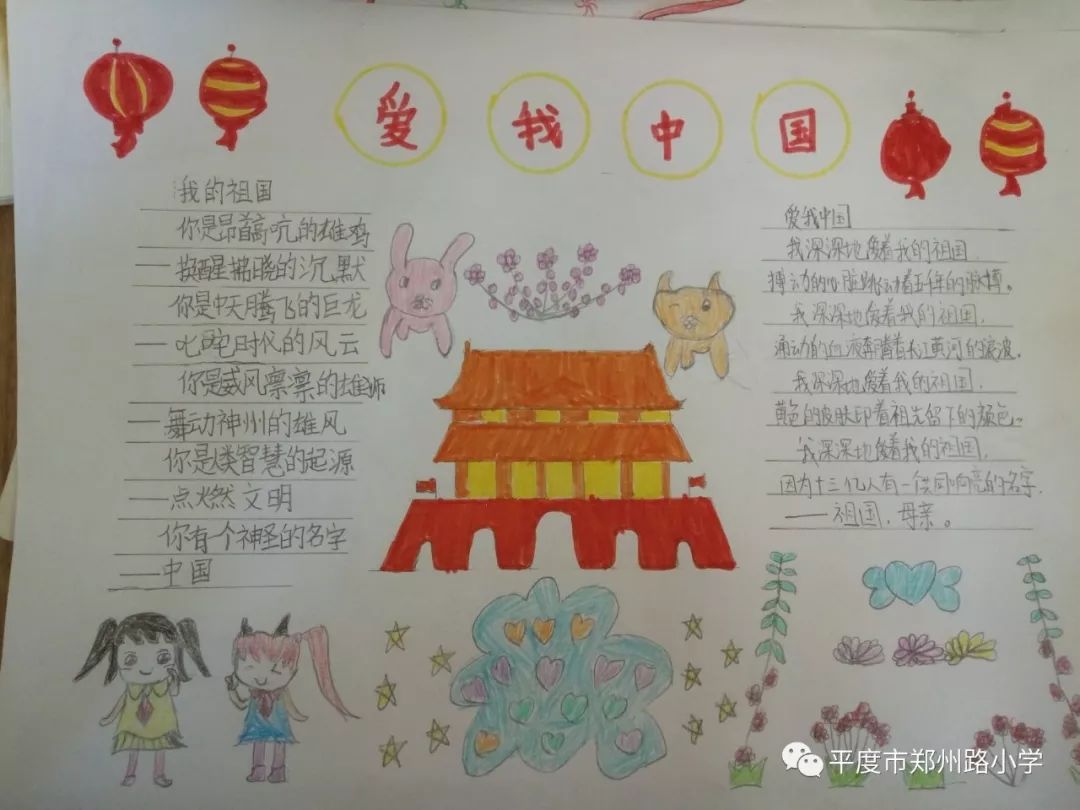 爱我中国
我的祖国
你是昂首高吭的雄鸡
——唤醒拂晓的沉默
你是中天腾飞的巨龙
——叱咤时代的风云
你是威风凛凛的雄师
——舞动神州的雄风
你是类智慧的起源
——点燃文明
你有个神圣的名字
——中国
爱我中国
我深深地爱着我的祖国,
搏动的心脏跳动着五千年的脉搏。
我深深地爱着我的祖国,
涌动的血液奔腾着长江黄河的波。
我深深地爱着我的祖国,
黄色的皮肤印着祖先留下的颜色。
我深深地爱着我的祖国,
因为十三亿人有一共同响亮的名字
——祖国,母亲。
平度市郑州路小学